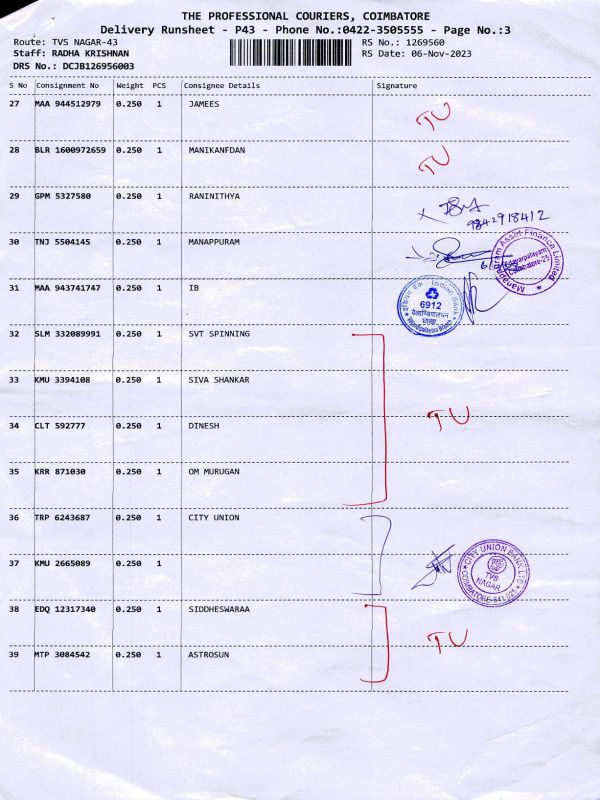 THE PROFESSIONAL COURIERS, COIMBATORE
Delivery Runsheet - P43 - Phone No.:0422-3505555 - Page No.:3
Route: TVS NAGAR-43 RS No.: 1269560
Staff: RADHA KRISHNAN RS Date: 06-Nov-2023
DRS No.: DCJB126956003
S No Consignment No Weight PCS Consignee Details Signature
27 MAA 944512979 0.250 1 JAMEES TU
28 BLR 1600972659 0.250 1 MANIKANFDAN TU
29 GPM 5327580 0.250 1 RANINITHYA
9842918412
30 TNJ 5504145 0.250 1 MANAPPURAM
Manappuram Asset Finance Limited
Coimbatore-25
31 MAA 943741747 0.250 1 IB
इंडियन बैंक Indian Bank
6912
शाखा
32 SLM 332089991 0.250 1 SVT SPINNING
33 KMU 3394108 0.250 1 SIVA SHANKAR
TU
34 CLT 592777 0.250 1 DINESH
35 KRR 871030 0.250 1 OM MURUGAN
36 TRP 6243687 0.250 1 CITY UNION
37 KMU 2665089 0.250 1
CITY UNION BANK LTD
TVS
NAGAR
COIMBATORE-641 025
38 EDQ 12317340 0.250 1 SIDDHESWARAA
TU
39 MTP 3084542 0.250 1 ASTROSUN